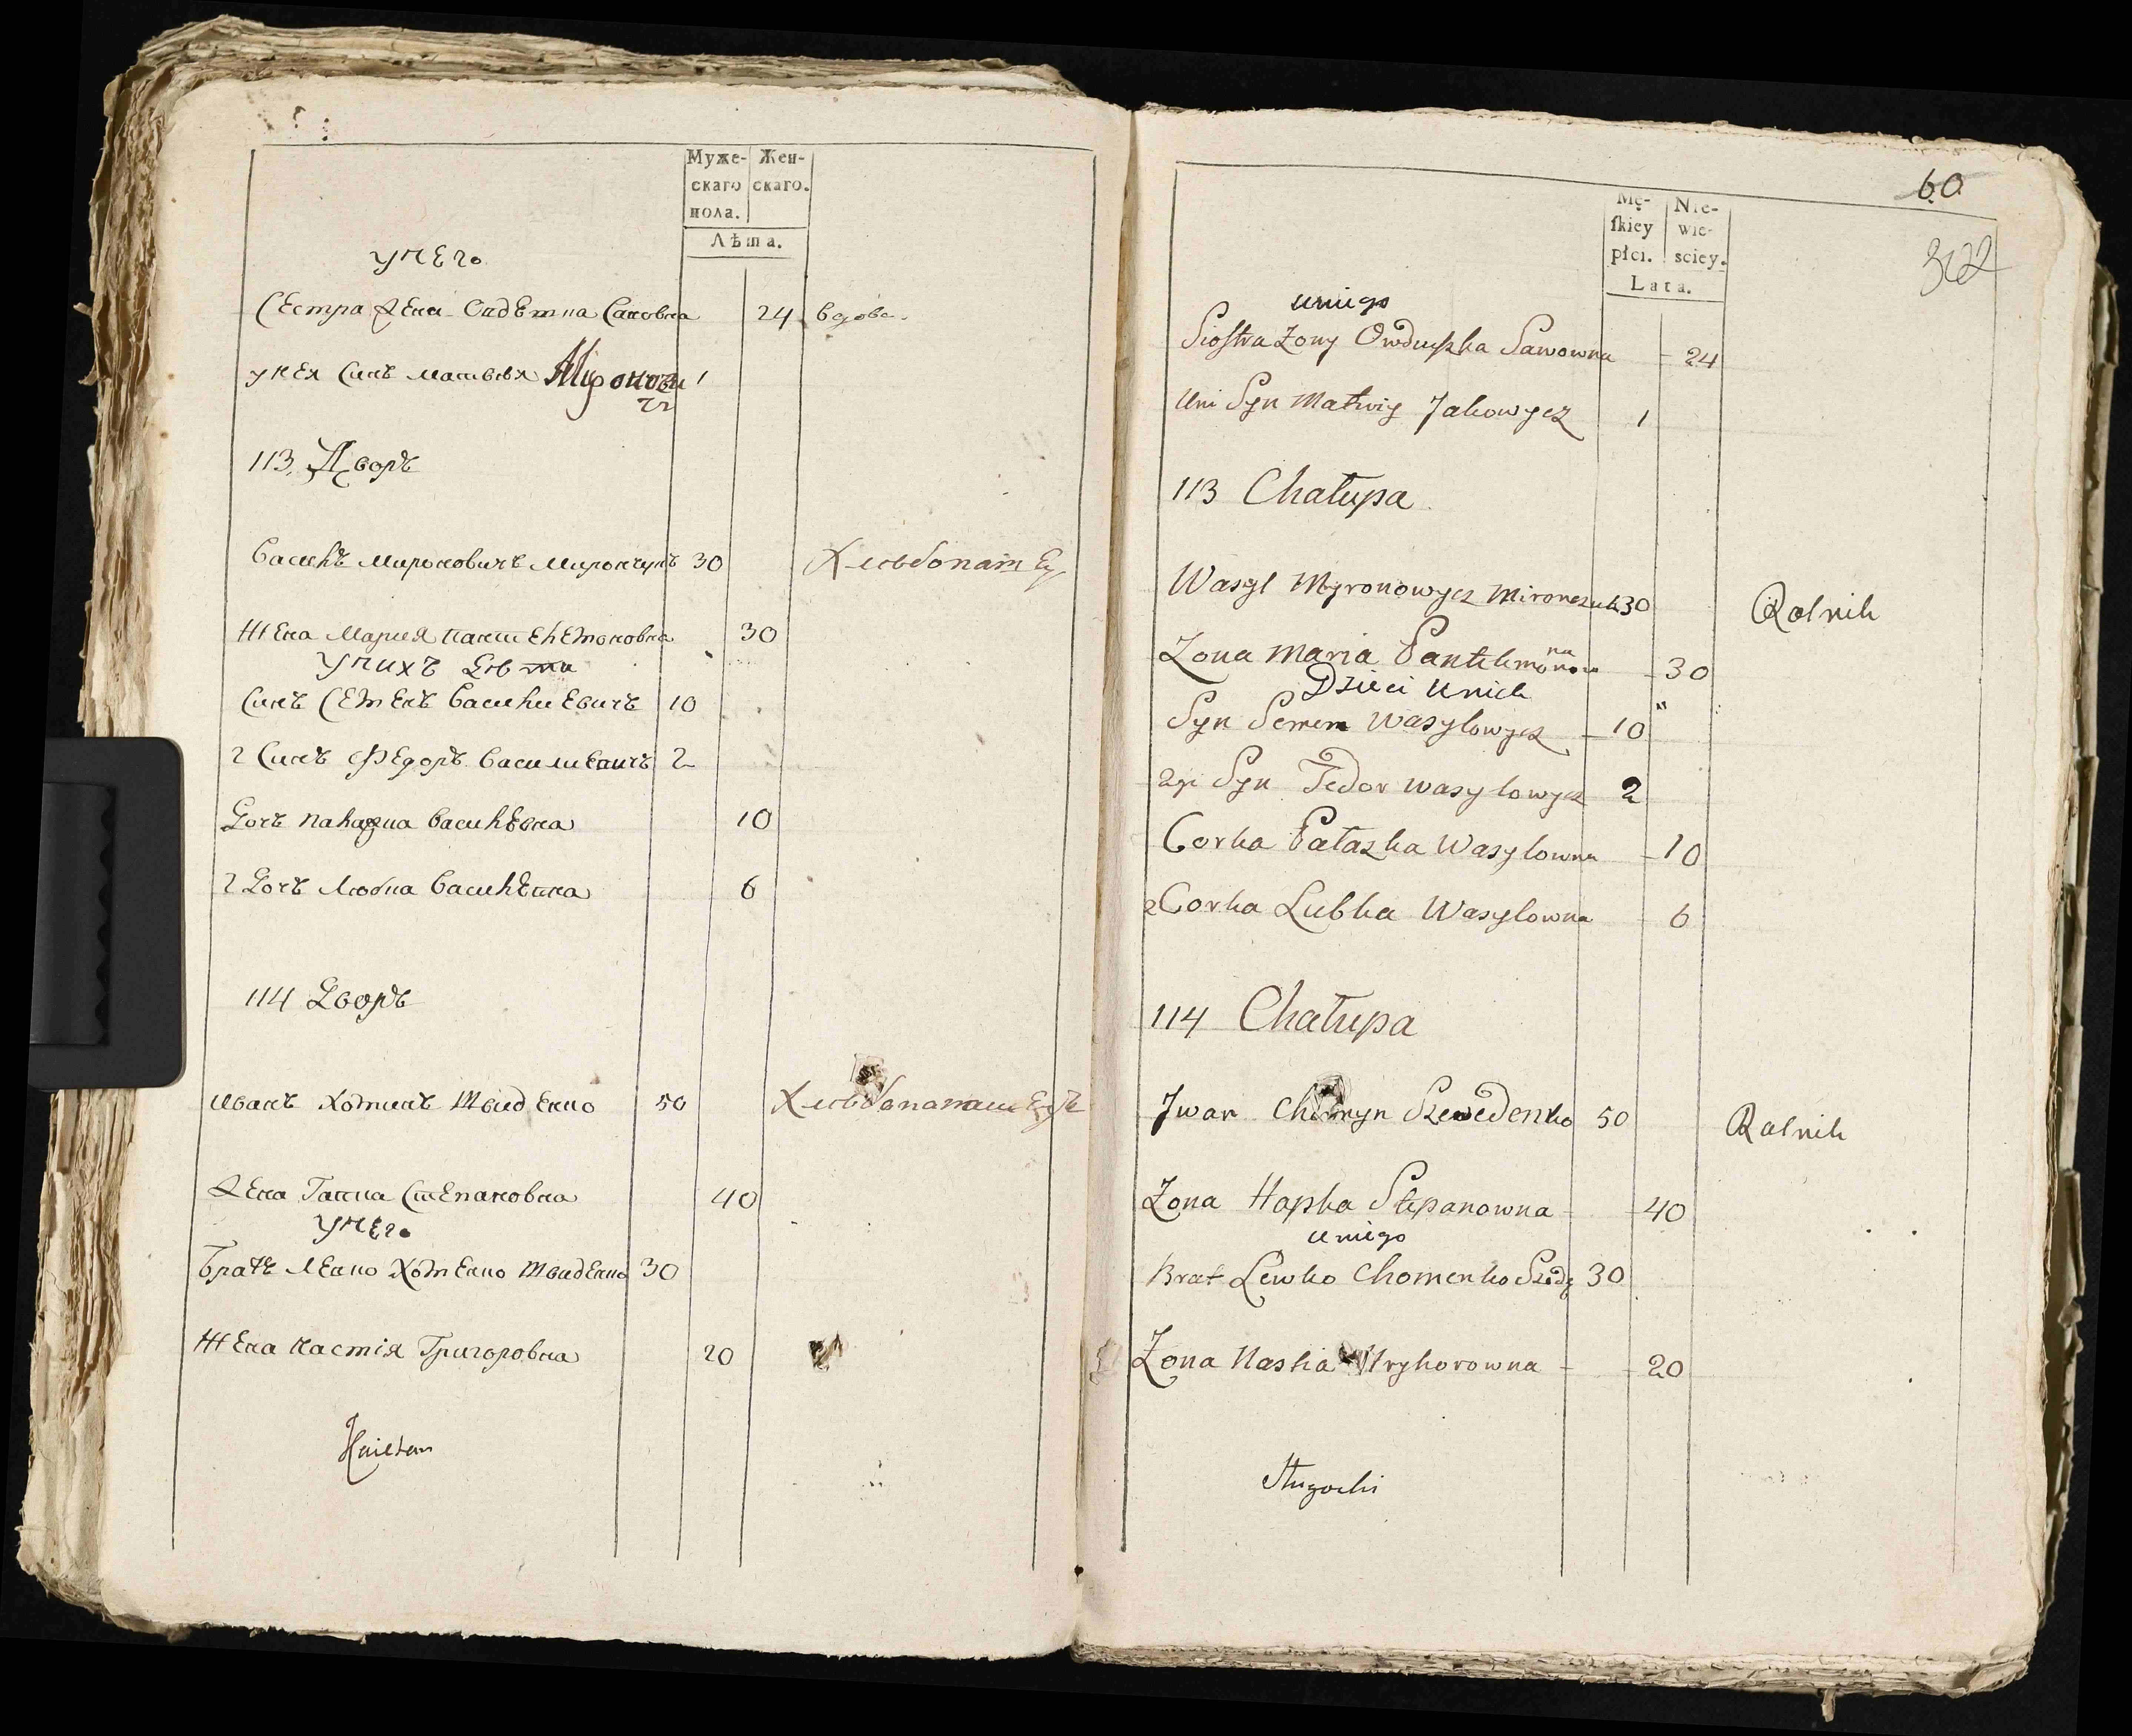 Муже-
скаго
пола.
Жен-
скаго.
Лѣта.
у него
Сестра жени Овдѣшка Савовна 24 вдова
у нея Синъ матвѣя Миронови
чъ 1
113 Дворъ
Василъ мироновичъ мирончукъ 30 Хлѣбопашец
Жена Мария пантелемоновна 30
у нихъ дѣти
Синъ Семенъ Василиевичъ 10
2 Синъ Федоръ Василиевичъ 2
Дочъ палажка василѣвна 10
2 Дочъ Любка василѣвна 6
114 Дворъ
иванъ хоминъ шведенко 50 Хлѣбопашецъ
жена Гапка Степановна 40
у него
братъ Левко Хоменко шведенко 30
Жена настія Григоровна 20
60
Mę-
skiey
płci.
Nie-
wie-
sciey.
Lata.
322
uniego
Siostra Zony Owduszka Sawowna - 24
Uni Syn Matwiy Jakowycz 1
113 Chałupa
Wasyl Myronowycz Mironczuk 30 Rolnik
Zona Maria Pantelimonow
na - 30
Dzieci Unich
Syn Semen Wasylowycz - 10
2gi Syn Fedor Wasylowycz 2
Corka Pałazka Wasylowna - 10
2 Corka Lubka Wasylowna - 6
114 Chałupa
Jwan Chomyn Szwedenko 50 Rolnik
Zona Hapka Stepanowna - - 40
uniego
Brat Lewko Chomenko 30
Zona Naska Hryhorowna - - 20